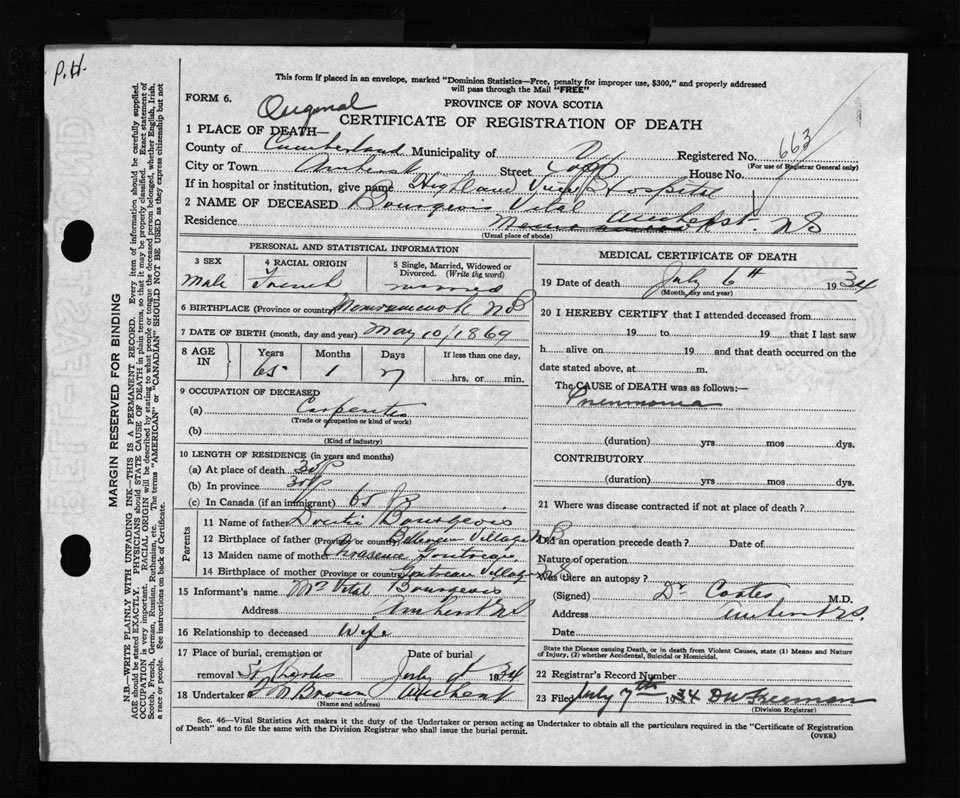 P.H.
This form if placed in an envelope, marked "Dominion Statistics—Free, penalty for improper use, $300," and properly addressed
will pass through the Mail "FREE"
FORM 6.
Original
PROVINCE OF NOVA SCOTIA
CERTIFICATE OF REGISTRATION OF DEATH
663
1 PLACE OF DEATH—
County of Cumberland Municipality of Registered No.
(For use of Registrar General only)
City or Town Amherst Street House No.
If in hospital or institution, give name Highland View Hospital
2 NAME OF DECEASED Bourgeois Vital
Residence Amherst. NS
(Usual place of abode)
PERSONAL AND STATISTICAL INFORMATION
3 SEX
Male
4 RACIAL ORIGIN
French
5 Single, Married, Widowed or
Divorced. (Write the word)
6 BIRTHPLACE (Province or country) NB
7 DATE OF BIRTH (month, day and year) May 10/1869
8 AGE
IN
Years
65
Months
1
Days
If less than one day,
hrs. or min.
9 OCCUPATION OF DECEASED
(a) Carpenter
(Trade or occupation or kind of work)
(b)
(Kind of industry)
10 LENGTH OF RESIDENCE (in years and months)
(a) At place of death
(b) In province
(c) In Canada (if an immigrant) 65
Parents
11 Name of father Bourgeois
12 Birthplace of father (Province or country) Village NB
13 Maiden name of mother
14 Birthplace of mother (Province or country) Village
15 Informant's name Mrs Vital Bourgeois
Address Amherst NS
16 Relationship to deceased Wife
17 Place of burial, cremation or
removal St Charles
Date of burial
July 1934
18 Undertaker Brown Amherst
(Name and address)
MEDICAL CERTIFICATE OF DEATH
19 Date of death July 6th 1934
(Month, day and year)
20 I HEREBY CERTIFY that I attended deceased from
19 to 19 that I last saw
h alive on 19 and that death occurred on the
date stated above, at m.
The CAUSE of DEATH was as follows:—
Pneumonia
(duration) yrs mos dys.
CONTRIBUTORY
(duration) yrs mos dys.
21 Where was disease contracted if not at place of death?
Did an operation precede death? Date of
Nature of operation
Was there an autopsy?
(Signed) Dr Coates M.D.
Address Amherst NS.
Date
State the Disease causing Death, or in death from Violent Causes, state (1) Means and Nature
of Injury, (2) whether Accidental, Suicidal or Homicidal.
22 Registrar's Record Number
23 Filed July 7th 1934 D W Freeman
(Division Registrar)
Sec. 46—Vital Statistics Act makes it the duty of the Undertaker or person acting as Undertaker to obtain all the particulars required in the "Certificate of Registration
of Death" and to file the same with the Division Registrar who shall issue the burial permit.
(OVER)
MARGIN RESERVED FOR BINDING
N.B.—WRITE PLAINLY WITH UNFADING INK—THIS IS A PERMANENT RECORD. Every item of information should be carefully supplied.
AGE should be stated EXACTLY. PHYSICIANS should STATE CAUSE OF DEATH in plain terms, so that it may be properly classified. Exact statement of
OCCUPATION is very important. RACIAL ORIGIN will be described by stating to what people or tongue the deceased person belonged, whether English, Irish,
Scotch, French, German, Russian, Ruthenian, etc. The terms "AMERICAN" or "CANADIAN" SHOULD NOT BE USED as they express citizenship but not
a race or people. See instructions on back of Certificate.